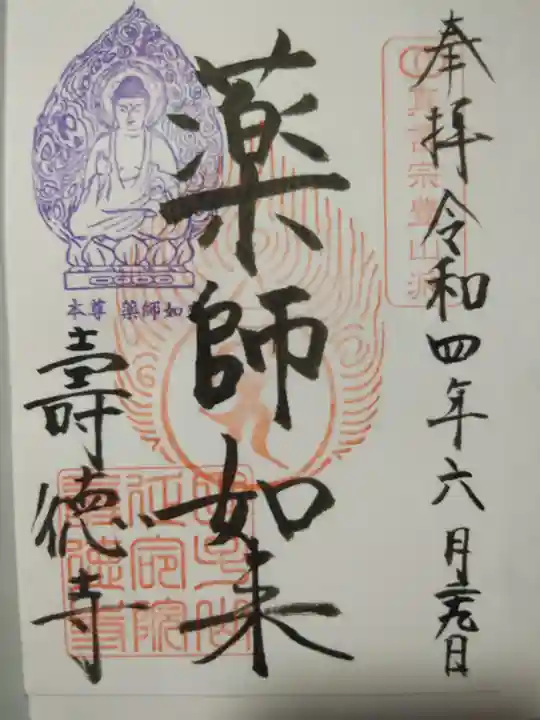 奉拝 令和四年六月二九日
真言宗豊山派
薬師如来
本尊 薬師如
壽徳寺